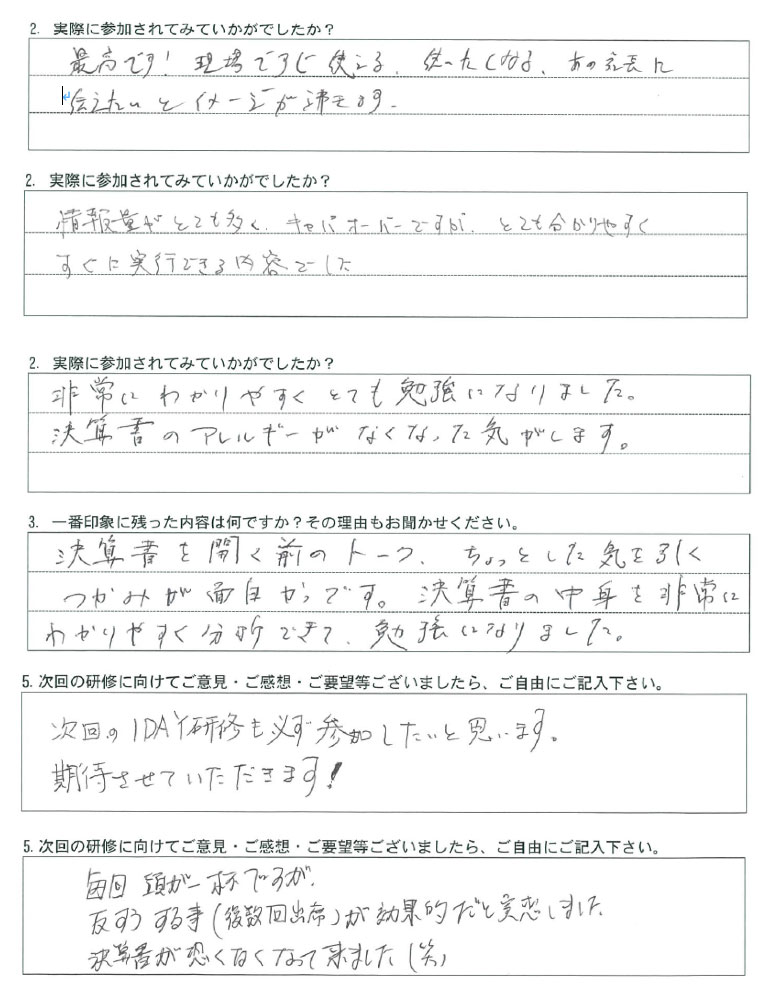 2. 実際に参加されてみていかがでしたか？
最高です！現場ですぐ使える、使ったくなる、あの社長に
伝えたいとイメージが沸きます。
2. 実際に参加されてみていかがでしたか？
情報量がとても多く、キャパオーバーですが、とても分かりやすく
すぐに実行できる内容でした
2. 実際に参加されてみていかがでしたか？
非常にわかりやすくとても勉強になりました。
決算書のアレルギーがなくなった気がします。
3. 一番印象に残った内容は何ですか？その理由もお聞かせください。
決算書を開く前のトーク、ちょっとした気を引く
つかみが面白かっです。決算書の中身を非常に
わかりやすく分析できて、勉強になりました。
5. 次回の研修に向けてご意見・ご感想・ご要望等ございましたら、ご自由にご記入下さい。
次回の1DAY研修も必ず参加したいと思います。
期待させていただきます！
5. 次回の研修に向けてご意見・ご感想・ご要望等ございましたら、ご自由にご記入下さい。
毎回 頭が一杯ですが、
反すうする事(複数回出席)が効果的だと実感しました
決算書が恐くなくなって来ました(笑)